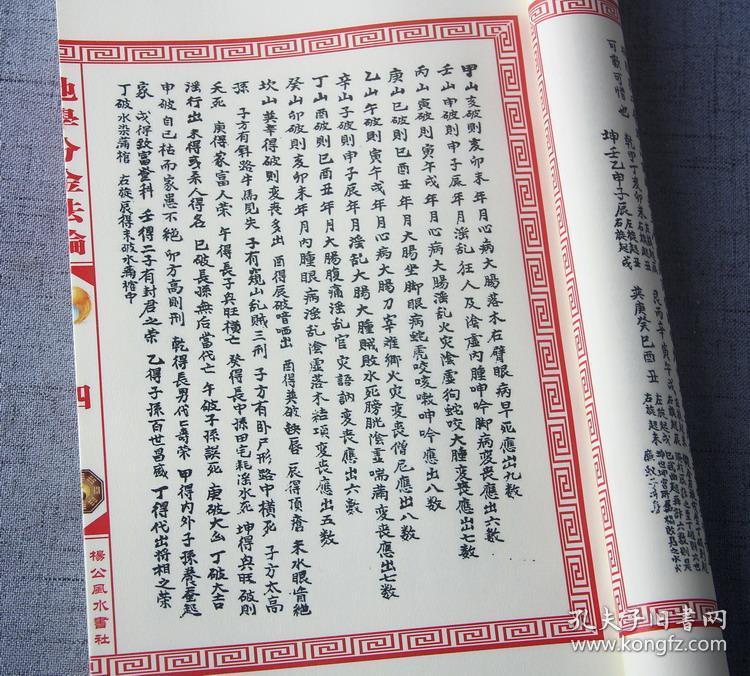 可勸可惜也
乾甲丁亥卯未
坤壬乙申子辰
艮丙辛寅午戌
巽庚癸巳酉丑
甲山亥破則亥卯未年月心病大腸落木右臂眼病早死應出九数
壬山申破則申子辰年月淫乱狂人及陰虛內腫呻吟脚病变喪應出六数
丙山寅破則寅午戌年月心病大腸淫乱火灾陰虛狗蛇咬大腫变喪應出七数
庚山巳破則巳酉丑年月大腸坐脚眼病蛇虎咬咳嗽呻吟應出八数
乙山午破則寅午戌年月心病大腸刀宰離鄉火灾变喪僧尼應出八数
辛山子破則申子辰年月淫乱大腸大腫賊敗水死膀胱陰虛喘满变喪應出七数
丁山酉破則巳酉丑年月大腸腹痛淫乱官灾語訥变喪應出六数
癸山卯破則亥卯未年月內腫眼病淫乱陰虛落木粘項变喪應出五数
坎山巽辛得破則变喪多出 酉得辰破喑哂出 酉得巽破缺唇 辰得頂瘡 未水眼盲絕
孫 子方有斜路牛馬見失 子有窺山乱賊三刑 子方有卧尸形路中横死 子方太高
夭死 庚得家富人荣 午得長子興旺横亡 癸得長中孫田宅耗淫水死 坤得興旺破則
淫行出 未得或系人得名 巳破長孫無后當代亡 午破子孫誤死 庚破大凶 丁破大吉
申破自己枯而家患不絕 卯方高則刑 乾得長男代代奇荣 甲得內外子孫養蚕起
家 戌得致富登科 壬得二子有封君之荣 乙得子孫百世昌盛 丁得代出將相之荣
丁破水染满棺 右旋辰得未破水满棺中
地學分金法論
四
楊公風水書社
孔夫子旧书网
www.kongfz.com